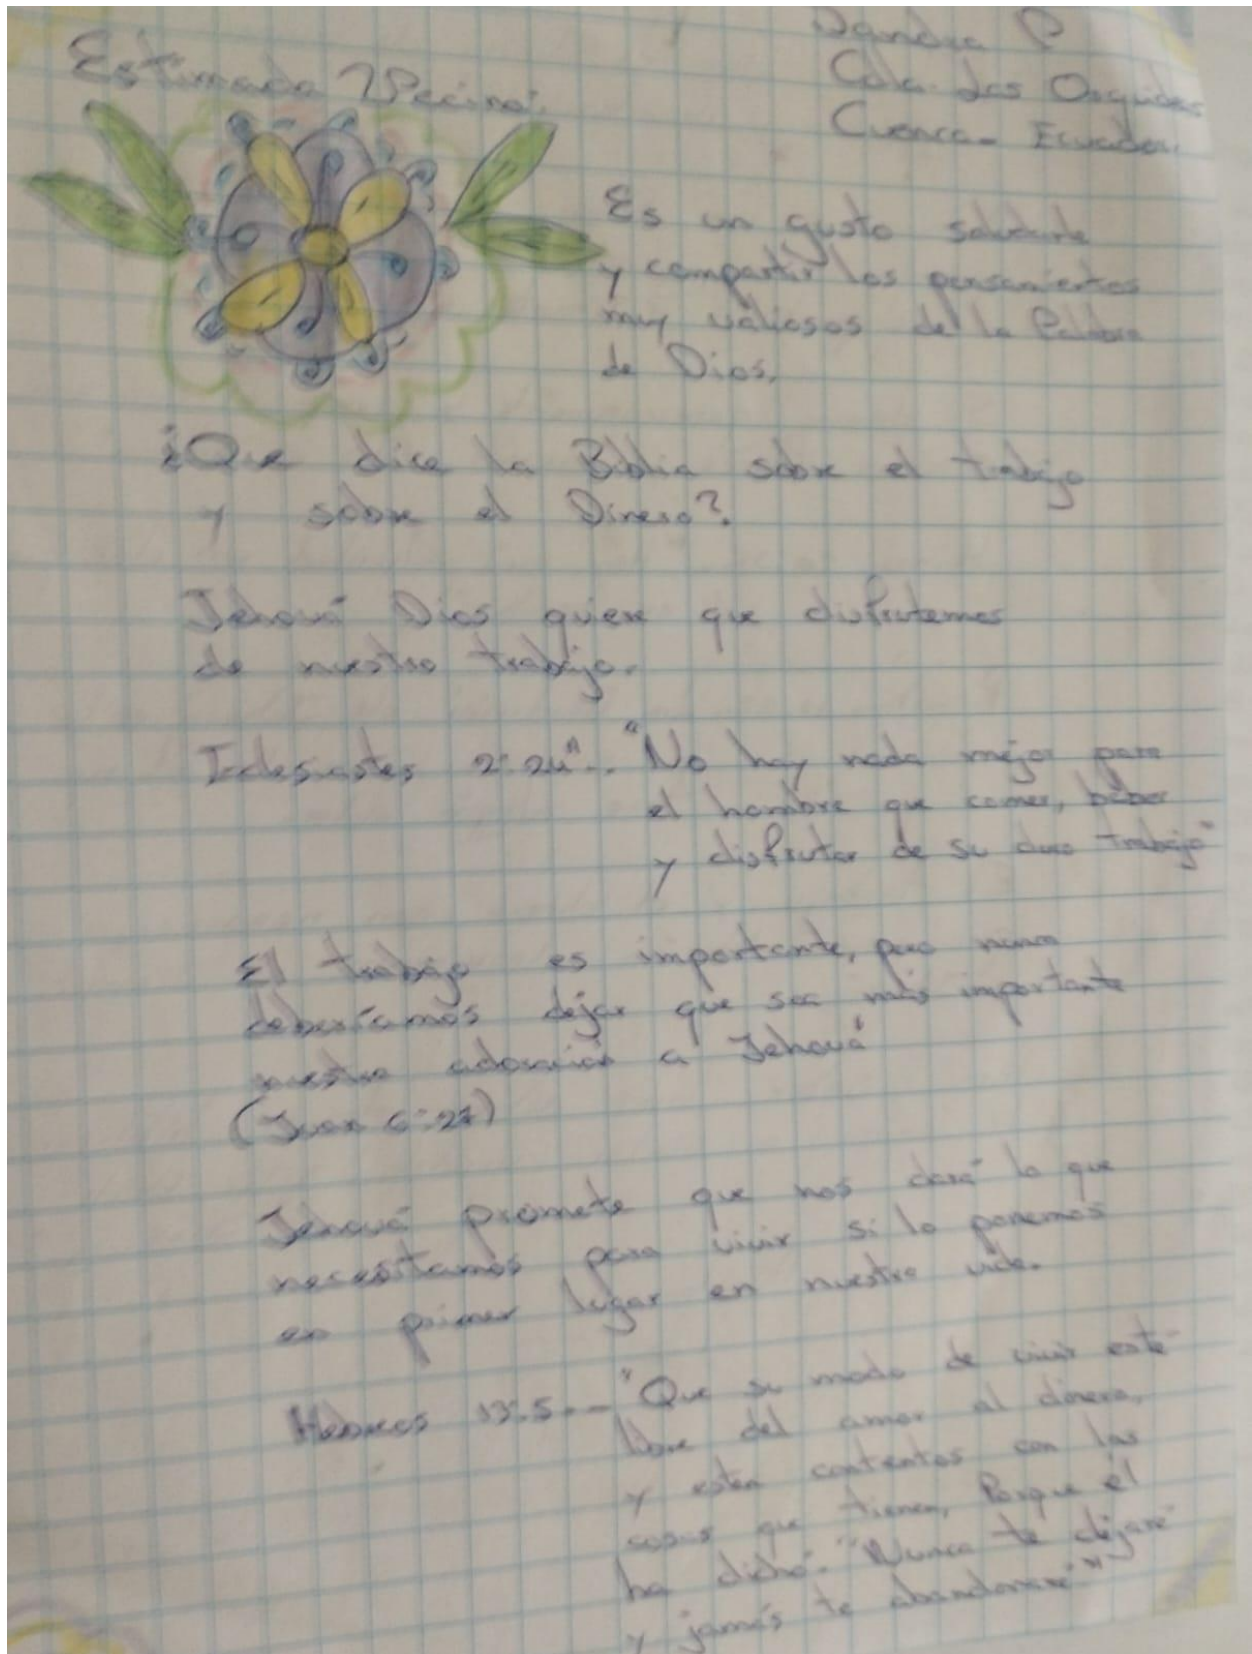 Sandra P
Cdla. Las Orquídeas
Cuenca - Ecuador.
Estimado Vecino:
Es un gusto saludarte
y compartir los pensamientos
muy valiosos de la Palabra
de Dios.
¿Que dice la Biblia sobre el trabajo
y sobre el Dinero?
Jehová Dios quiere que disfrutemos
de nuestro trabajo.
2:24".- "No hay nada mejor para
el hombre que comer, beber
y disfrutar de su duro trabajo"
El trabajo es importante, pero nunca
deberíamos dejar que sea más importante
nuestra adoración a Jehová
(Juan 6:27)
Jehová promete que nos dará lo que
necesitamos para vivir si lo ponemos
en primer lugar en nuestra vida.
Hebreos 13:5.- "Que su modo de vivir esté
libre del amor al dinero,
y estén contentos con las
cosas que tienen, Porque él
ha dicho: "Nunca te dejaré
y jamás te abandonaré""